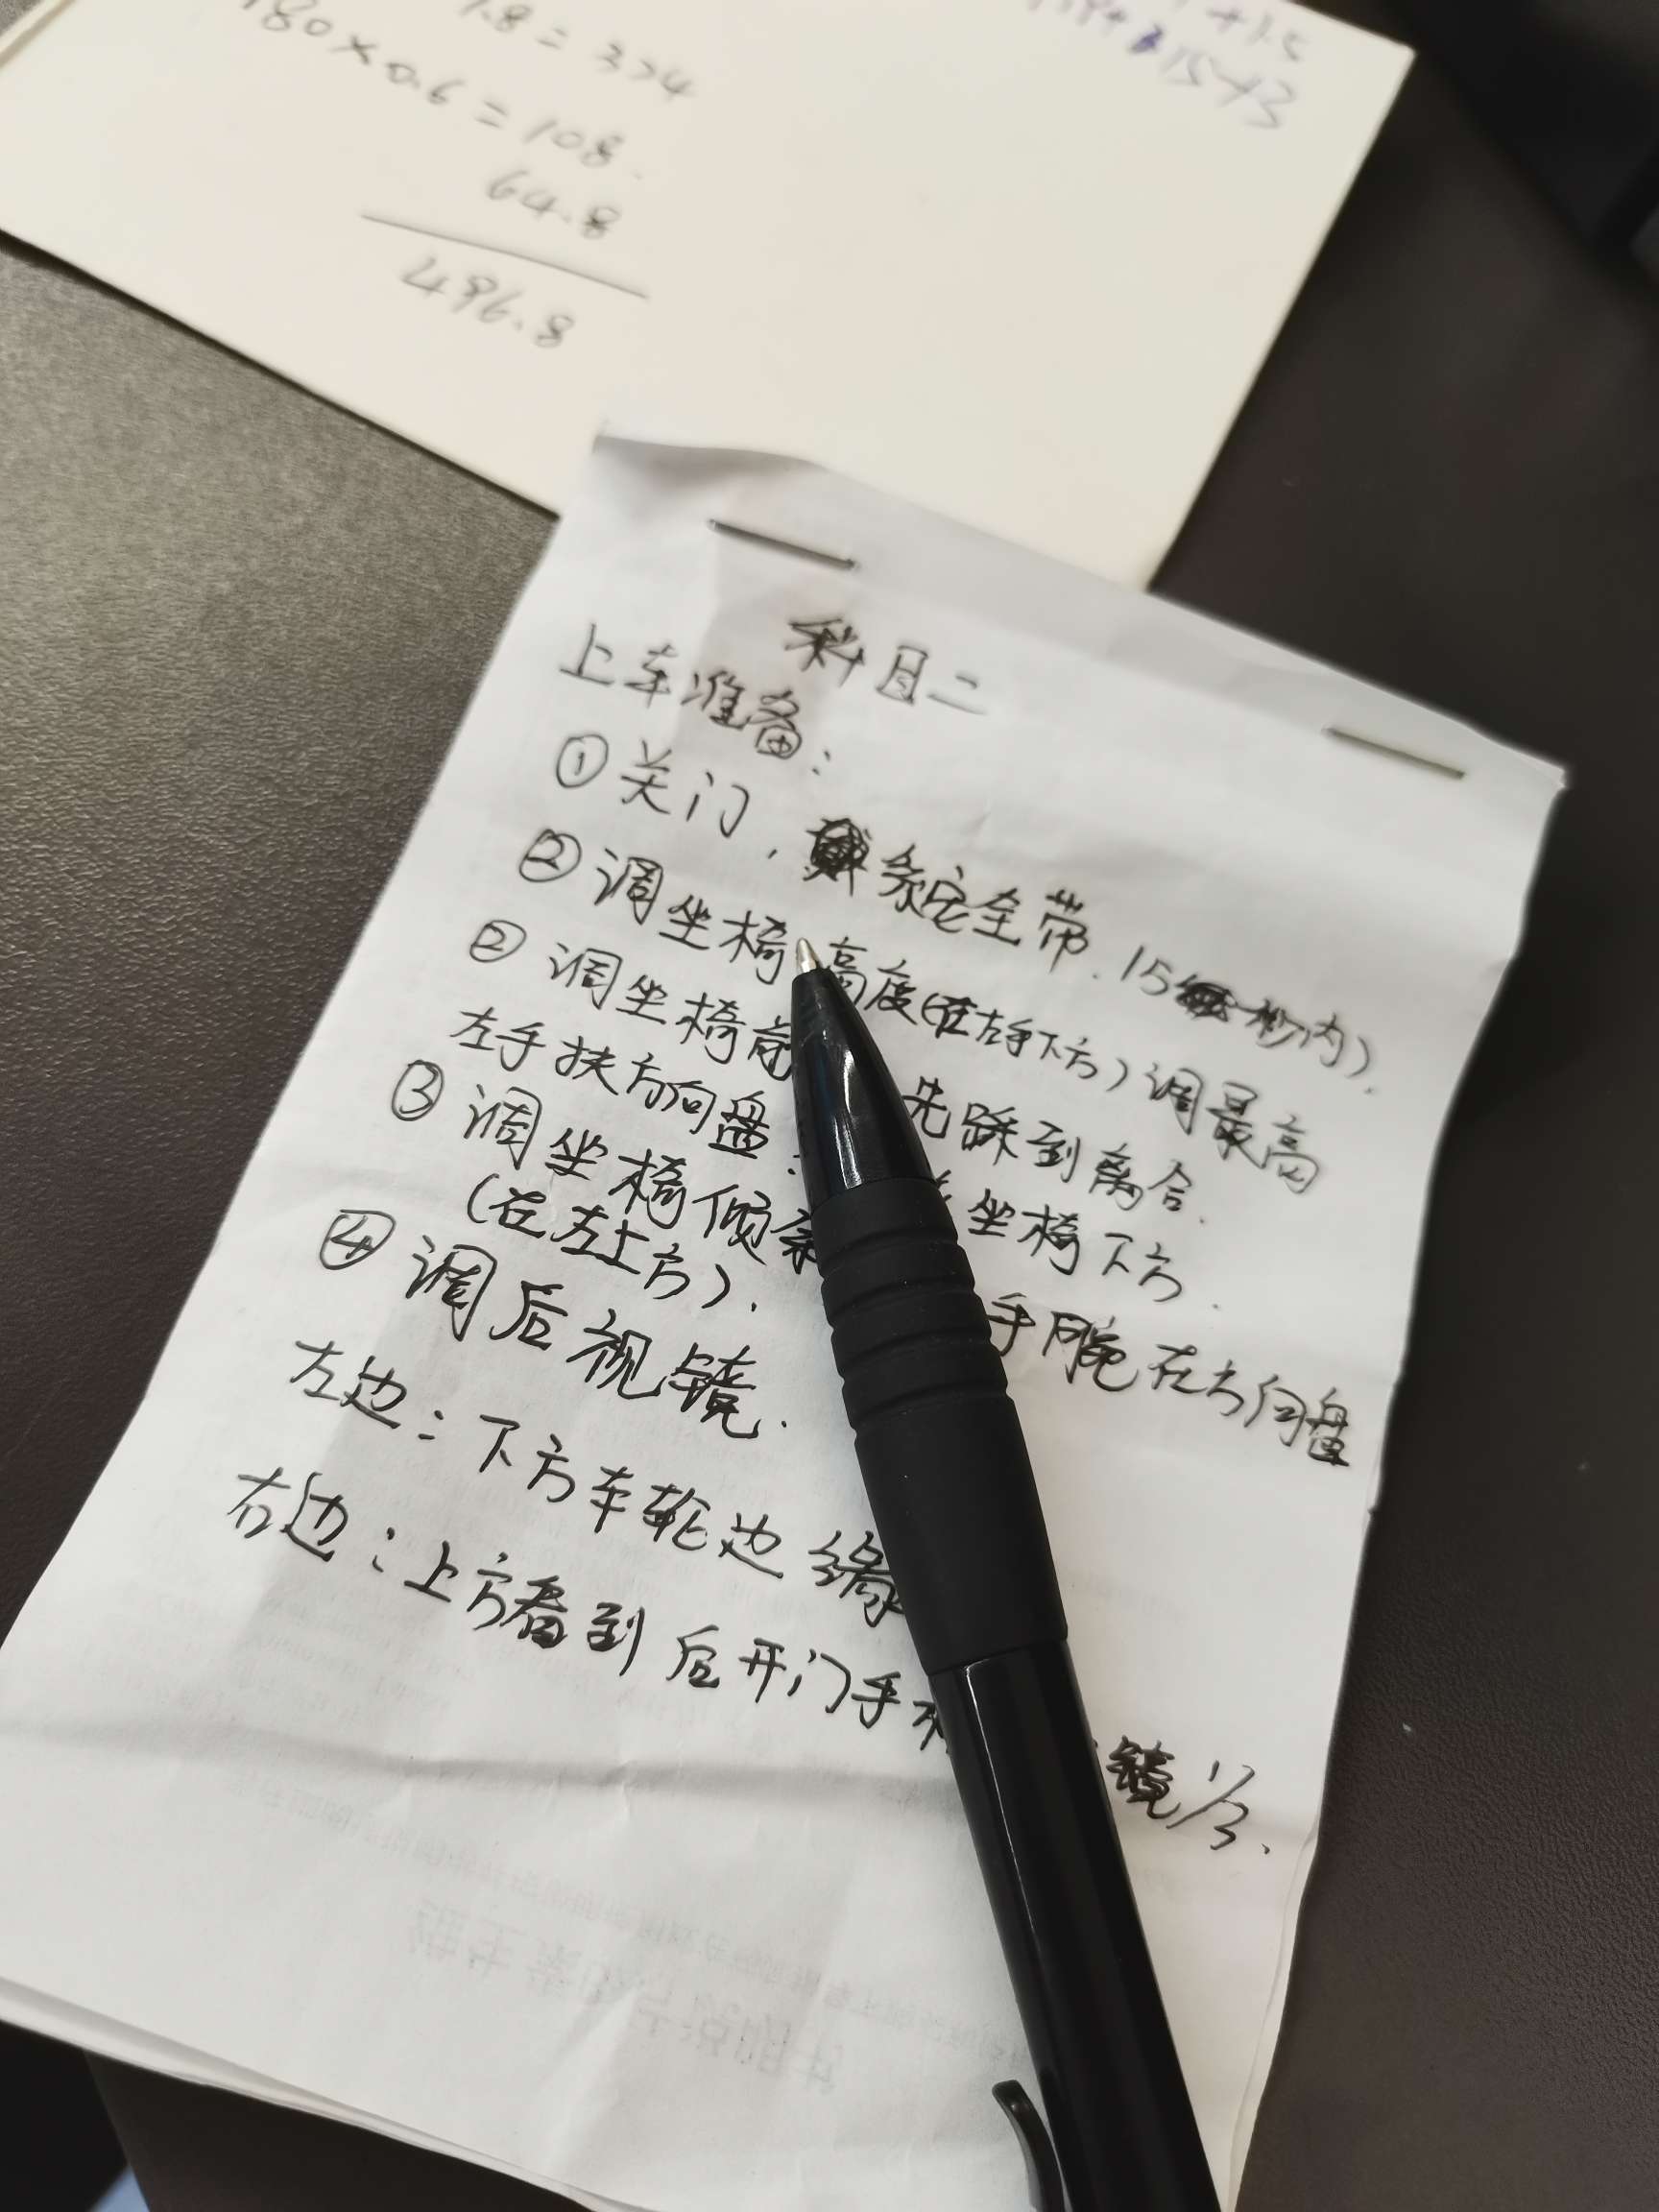 1.8 = 324
180×0.6 = 108.
64.8
496.8
科目二
上车准备：
①关门，系安全带.15秒内）.
②调坐椅高度（在左手下方）调最高
②调坐椅前 先踩到离合.
左手扶方向盘： 坐椅下方.
③调坐椅倾 手腕在方向盘
（在左上方）.
④调后视镜.
左边：下方车轮边缘
右边：上方看到后开门手 镜1/3.